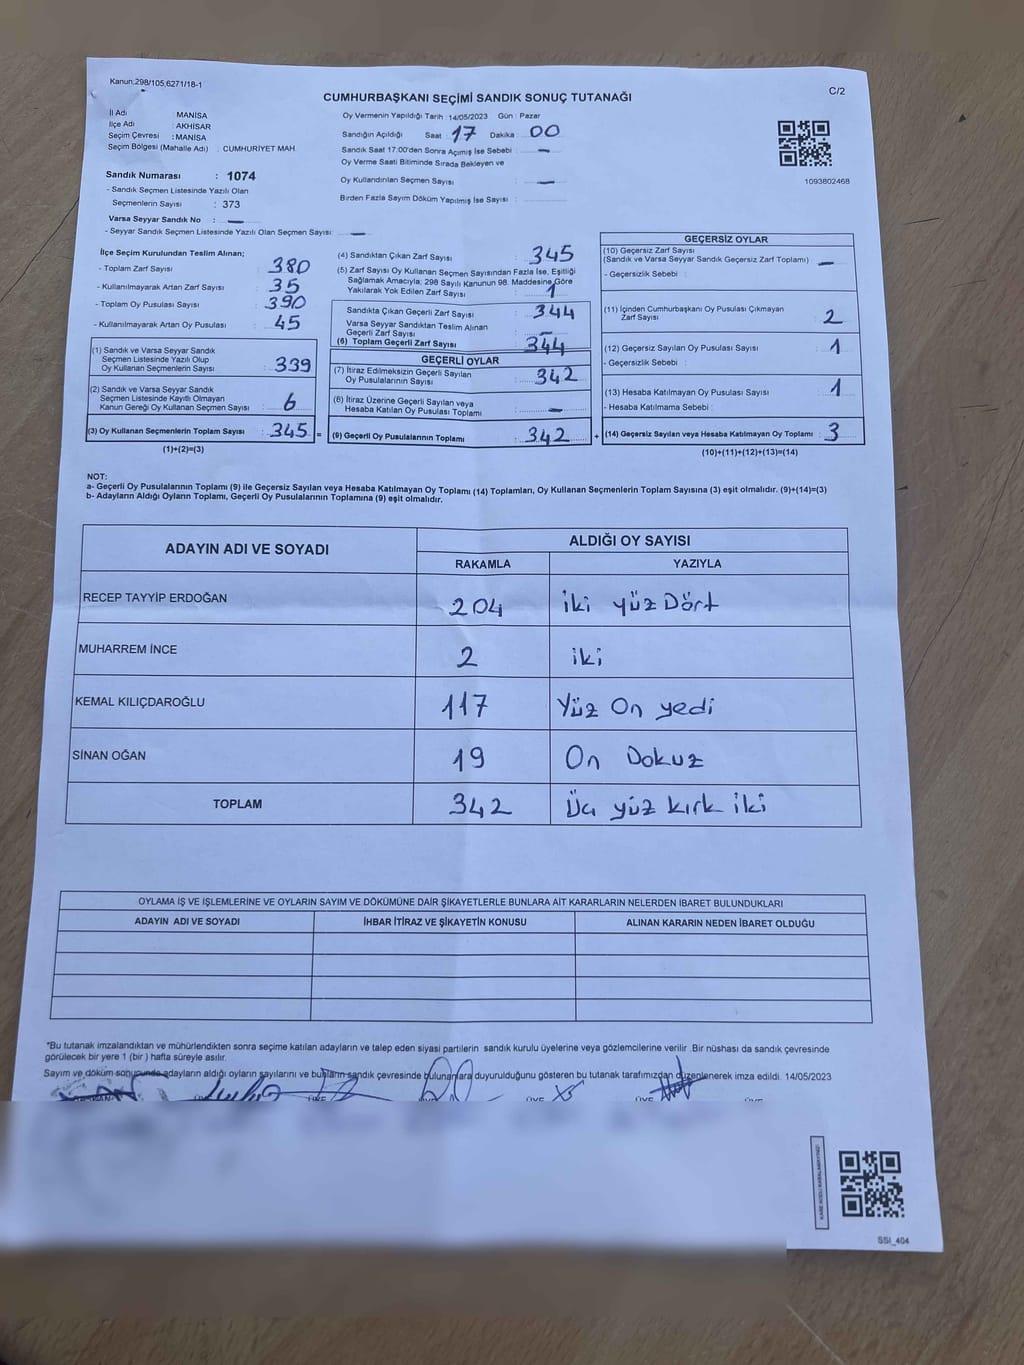 Kanun:298/105,6271/18-1
C/2
CUMHURBAŞKANI SEÇİMİ SANDIK SONUÇ TUTANAĞI
İl Adı : MANİSA
İlçe Adı : AKHİSAR
Seçim Çevresi : MANİSA
Seçim Bölgesi (Mahalle Adı) : CUMHURİYET MAH.
Sandık Numarası : 1074
- Sandık Seçmen Listesinde Yazılı Olan
Seçmenlerin Sayısı : 373
Varsa Seyyar Sandık No : —
- Seyyar Sandık Seçmen Listesinde Yazılı Olan Seçmen Sayısı: —
Oy Vermenin Yapıldığı Tarih :14/05/2023 Gün : Pazar
Sandığın Açıldığı Saat : 17 Dakika : 00
Sandık Saat 17:00'den Sonra Açımış İse Sebebi : —
Oy Verme Saati Bitiminde Sırada Bekleyen ve
Oy Kullandırılan Seçmen Sayısı : —
Birden Fazla Sayım Döküm Yapılmış İse Sayısı :
1093802468
İlçe Seçim Kurulundan Teslim Alınan;
- Toplam Zarf Sayısı : 380
- Kullanılmayarak Artan Zarf Sayısı : 35
- Toplam Oy Pusulası Sayısı : 390
- Kullanılmayarak Artan Oy Pusulası : 45
(1) Sandık ve Varsa Seyyar Sandık
Seçmen Listesinde Yazılı Olup
Oy Kullanan Seçmenlerin Sayısı : 339
(2) Sandık ve Varsa Seyyar Sandık
Seçmen Listesinde Kayıtlı Olmayan
Kanun Gereği Oy Kullanan Seçmen Sayısı : 6
(3) Oy Kullanan Seçmenlerin Toplam Sayısı : 345 =
(1)+(2)=(3)
(4) Sandıktan Çıkan Zarf Sayısı : 345
(5) Zarf Sayısı Oy Kullanan Seçmen Sayısından Fazla İse, Eşitliği
Sağlamak Amacıyla; 298 Sayılı Kanunun 98. Maddesine Göre
Yakılarak Yok Edilen Zarf Sayısı : 1
Sandıkta Çıkan Geçerli Zarf Sayısı : 344
Varsa Seyyar Sandıktan Teslim Alınan
Geçerli Zarf Sayısı : —
(6) Toplam Geçerli Zarf Sayısı : 344
GEÇERLİ OYLAR
(7) İtiraz Edilmeksizin Geçerli Sayılan
Oy Pusulalarının Sayısı : 342
(8) İtiraz Üzerine Geçerli Sayılan veya
Hesaba Katılan Oy Pusulası Toplamı : —
(9) Geçerli Oy Pusulalarının Toplamı : 342 +
GEÇERSİZ OYLAR
(10) Geçersiz Zarf Sayısı
(Sandık ve Varsa Seyyar Sandık Geçersiz Zarf Toplamı) : —
- Geçersizlik Sebebi :
(11) İçinden Cumhurbaşkanı Oy Pusulası Çıkmayan
Zarf Sayısı : 2
(12) Geçersiz Sayılan Oy Pusulası Sayısı : 1
- Geçersizlik Sebebi :
(13) Hesaba Katılmayan Oy Pusulası Sayısı : 1
- Hesaba Katılmama Sebebi :
(14) Geçersiz Sayılan veya Hesaba Katılmayan Oy Toplamı : 3
(10)+(11)+(12)+(13)=(14)
NOT:
a- Geçerli Oy Pusulalarının Toplamı (9) ile Geçersiz Sayılan veya Hesaba Katılmayan Oy Toplamı (14) Toplamları, Oy Kullanan Seçmenlerin Toplam Sayısına (3) eşit olmalıdır. (9)+(14)=(3)
b- Adayların Aldığı Oyların Toplamı, Geçerli Oy Pusulalarının Toplamına (9) eşit olmalıdır.
ADAYIN ADI VE SOYADI
ALDIĞI OY SAYISI
RAKAMLA YAZIYLA
RECEP TAYYİP ERDOĞAN 204 iki yüz Dört
MUHARREM İNCE 2 iki
KEMAL KILIÇDAROĞLU 117 Yüz On yedi
SİNAN OĞAN 19 On Dokuz
TOPLAM 342 Üç yüz kırk iki
OYLAMA İŞ VE İŞLEMLERİNE VE OYLARIN SAYIM VE DÖKÜMÜNE DAİR ŞİKAYETLERLE BUNLARA AİT KARARLARIN NELERDEN İBARET BULUNDUKLARI
ADAYIN ADI VE SOYADI İHBAR İTİRAZ VE ŞİKAYETİN KONUSU ALINAN KARARIN NEDEN İBARET OLDUĞU
*Bu tutanak imzalandıktan ve mühürlendikten sonra seçime katılan adayların ve talep eden siyasi partilerin sandık kurulu üyelerine veya gözlemcilerine verilir .Bir nüshası da sandık çevresinde
görülecek bir yere 1 (bir ) hafta süreyle asılır.
Sayım ve döküm sonucunda adayların aldığı oyların sayılarını ve bunların sandık çevresinde bulunanlara duyurulduğunu gösteren bu tutanak tarafımızdan düzenlenerek imza edildi. 14/05/2023
ÜYE ÜYE
SSI_404